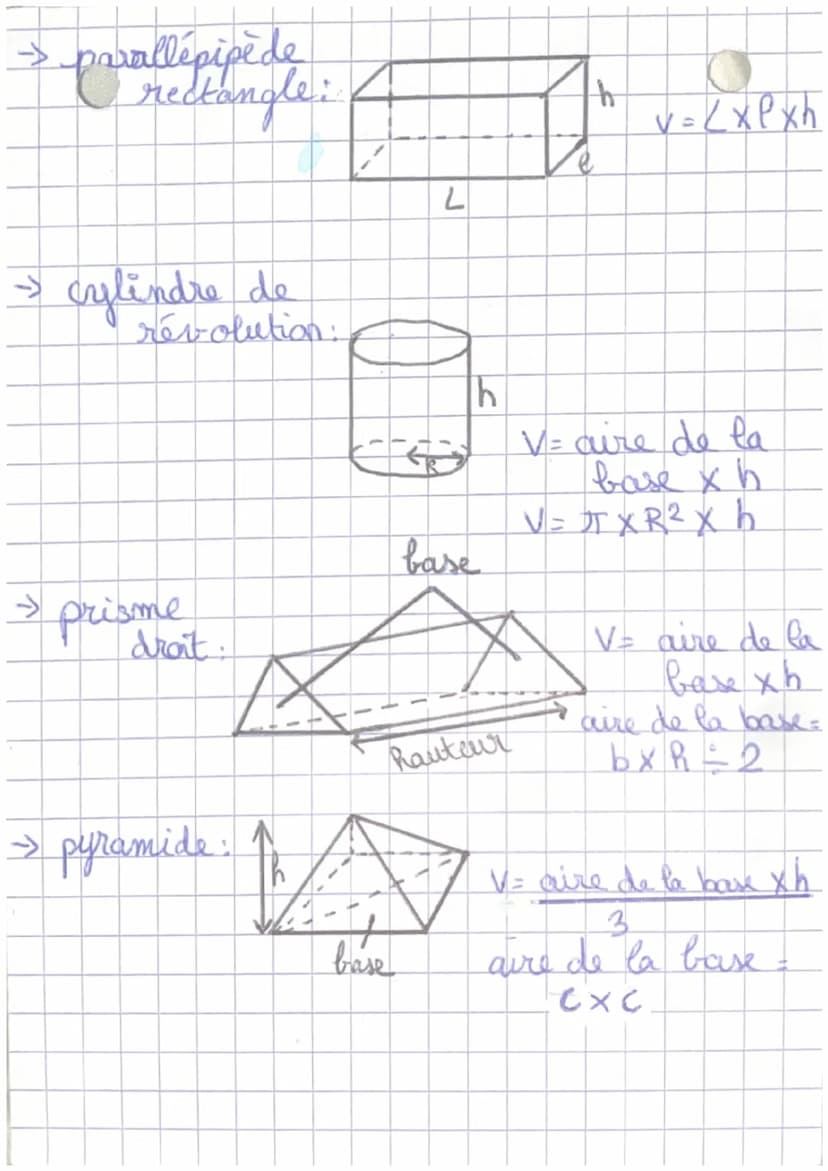 → parallépipède
rectangle:
h
V = L x l x h
l
L
→ cylindre de
révolution:
h
R
V = aire de la
base x h
V = π x R² x h
base
→ prisme
droit:
V = aire de la
base x h
aire de la base =
b x h ÷ 2
hauteur
→ pyramide:
h
V = aire de la base x h
3
base
aire de la base =
c x c